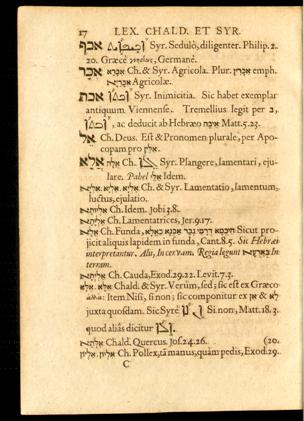 17 LEX. CHALD. ET SYR.
אכף Syr. Sedulò, diligenter. Philip. 2.
20. Græcè γνησίως, Germanè.
אכר אכרא Ch. & Syr. Agricola. Plur. אכרין emph.
Agricolæ.
אכת Syr. Inimicitia. Sic habet exemplar
antiquum Viennense. Tremellius legit per ב,
ac deducit ab Hebræo איבה Matt. 5. 23.
אל Ch. Deus. Est & Pronomen plurale, per Apo-
copam pro אלין
אלא אלה Ch. Syr. Plangere, lamentari, eju-
lare. Pahel אלי Idem.
Ch. & Syr. Lamentatio, lamentum,
luctus, ejulatio.
Ch. Idem. Job 38.
Ch. Lamentatrices, Jer. 9. 17.
Ch. Funda, Sicut pro-
jicit aliquis lapidem in funda, Cant. 8. 5. Sic Hebræi
interpretantur. Alii, In cervam. Regia legunt In
terram.
אליתא Ch. Cauda, Exod. 29. 22. Levit. 7. 3.
אלא Chald. & Syr. Verùm, sed; sic est ex Græco
ἀλλά: Item Nisi, si non; sic componitur ex אן & לא
juxta quosdam. Sic Syrè Si non, Matt. 18. 3.
quod aliàs dicitur
Chald. Quercus. Jos. 24. 26. (20.
Ch. Pollex, tā manus, quàm pedis, Exod. 29.
C